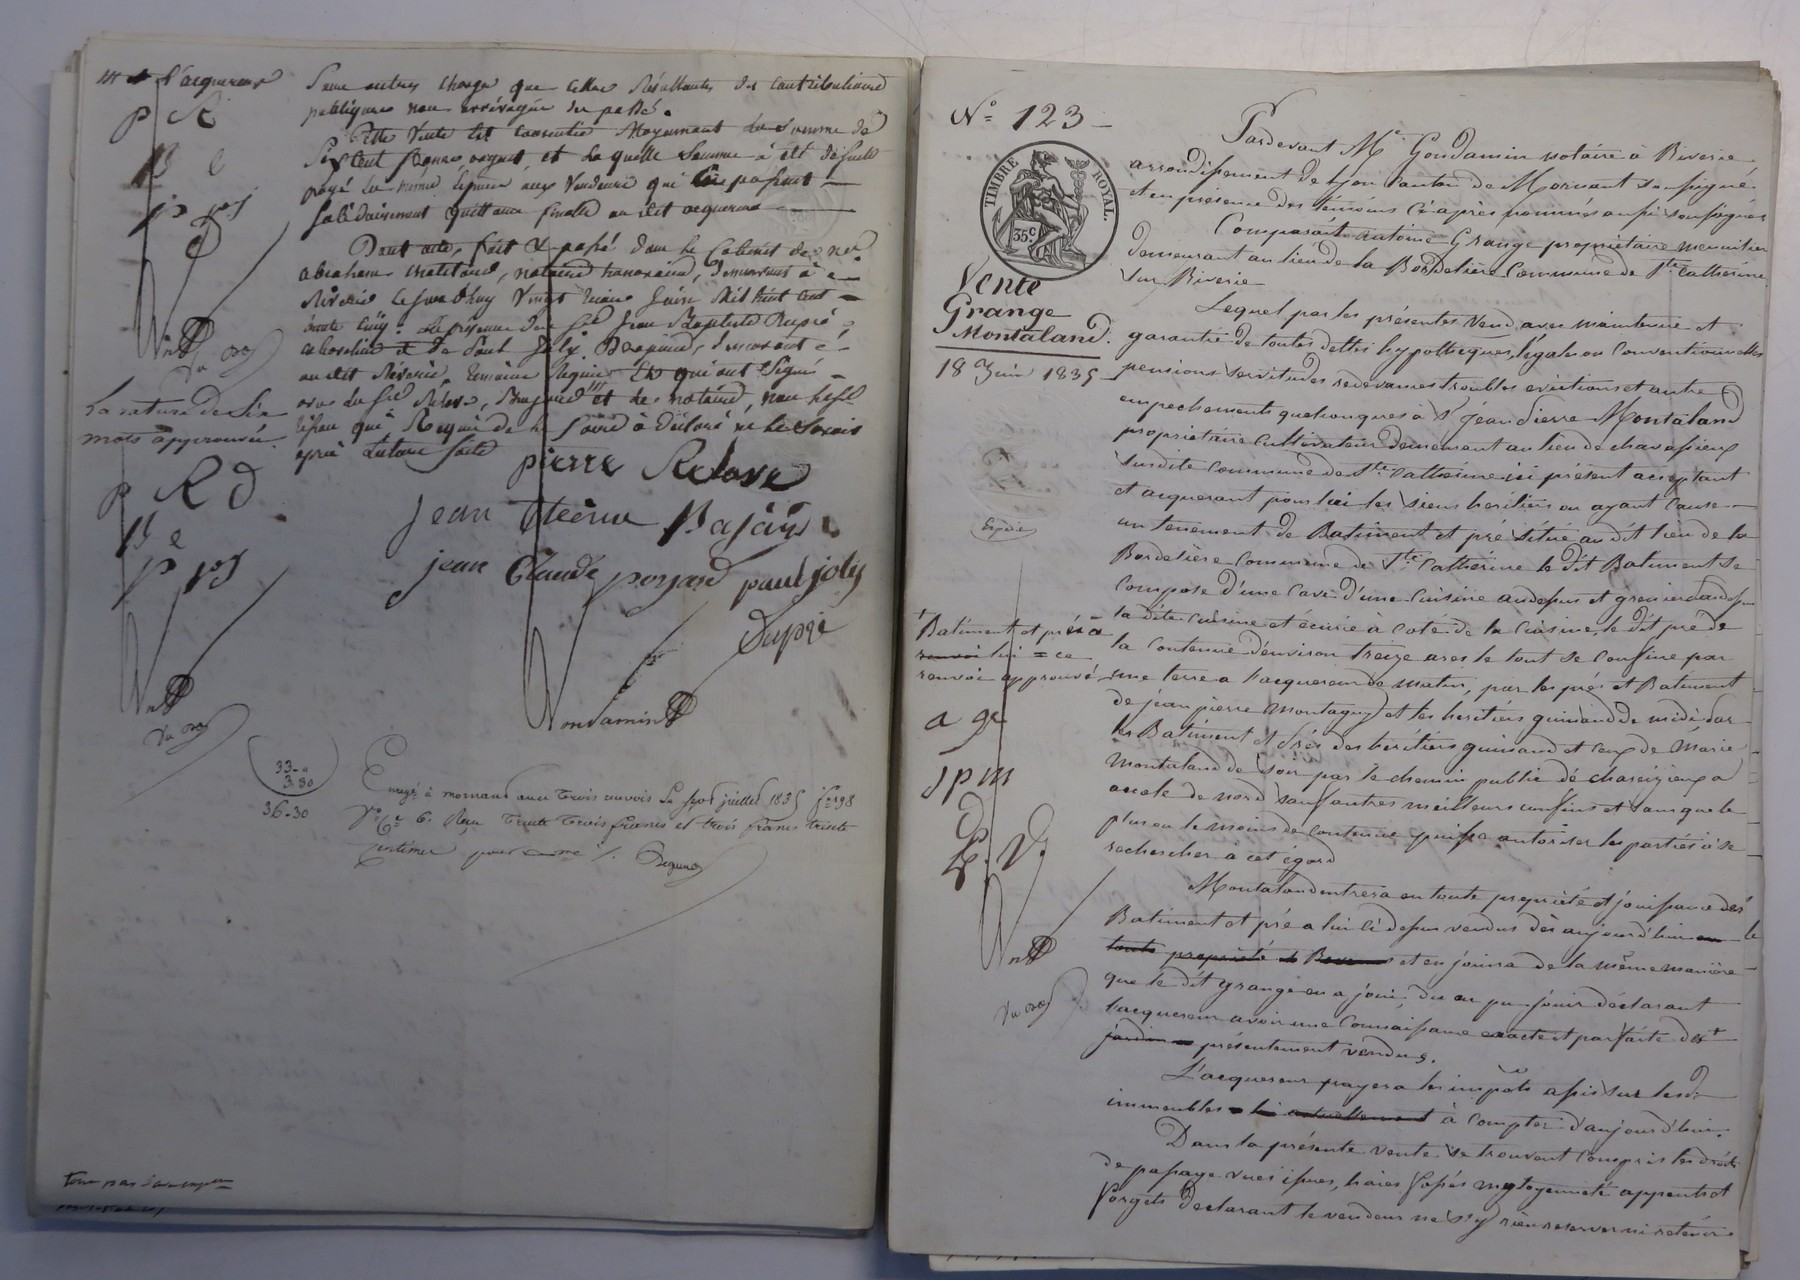 l'acquereur
Sans autres charges que celles résultantes des contributions
publiques non arrérages du passé.
Cette vente est consentie moyennant la somme de
Six cent francs, et laquelle somme à été de suite
payé aux vendeurs qui en passent
solidairement quittance finale au dit acquereur
Dont acte, fait & passé dans le cabinet de me
abraham notaire honoraire, demeurant à
Riverie le jourd'huy vingt juin mil huit cent
trente cinq. En présence de sr Jean Baptiste Dupré
cabaretier & de Paul Joly demeurant
au dit Riverie, témoins requis & qui ont signé
avec les sr Relave, et le notaire, non
de le savoir à déclaré ne le savoir
après lecture faite
La rature de six
mots approuvée
pierre Relave
Jean
jean Claude poyard paul joly
Dupré
Gondamin
33-"
3.30
36-30
Enregé à mornant avec trois renvois Le juillet 1835 fo 198
Vo Ce 6. Reçu trente trois francs et trois francs trente
Centimes pour
No 123
TIMBRE ROYAL.
35 c
Vente
Grange
Montaland.
18 Juin 1835
Pardevant Me Gondamin notaire à Riverie
arrondissement de Lyon canton de Mornant soussigné
et en présence des témoins ci après nommés aussi soussignés
Comparait antoine Grange propriétaire meunier
demeurant au lieu de la Bordelière Commune de Ste Catherine
sur Riverie
Lequel par les présentes vend avec maintenue et
garantie de toutes dettes hypothèques, légales ou Conventionnelles
pensions servitudes redevances troubles evictions et autre
empechements quelconques à sr Jean Pierre Montaland
propriétaire Cultivateur demeurant au lieu de chavassieux
susdite Commune de Ste Catherine ici présent acceptant
et acquerant pour lui les siens heritiers ou ayant Cause
un tenement de Batiment et pré situé au dit lieu de la
Bordelière Commune de Ste Catherine le dit Batiment se
Compose d'une Cave d'une Cuisine audessus et grenier audessus
la dite Cuisine et écurie à Coté de la Cuisine, le dit pré de
la Contenue d'environ treize ares le tout se Confine par
une terre a l'acquereur de matin, par les prés et Batiment
de jean pierre Montagny et les heritiers guinand de midi par
les Batiment et prés des heritiers guinand et Ceux de Marie
Montaland de soir par le chemin public de
accole de nord sauf autres meilleurs confins et sans que le
plus ou le moins de Contenue puisse autoriser les parties à se
rechercher à cet égard
Batiment et pré a
renvoi lui = ce
renvoi approuvé
a g
J p m
Montaland entrera en toute propriété et jouissance des
Batiment et pré a lui ci dessus vendus dès aujourd'hui en
toute propriété et et en jouira de la même manière
que le dit grange en a joui, du ou pu jouir déclarant
l'acquereur avoir une Connaissance exacte et parfaite des
jardin présentement vendus.
L'acquereur payera les impôts assis sur lesd.
immeubles actuellement à Compter d'aujourd'hui.
Dans la présente vente se trouvent Compris les droits
de passage vues issues, haies fossés mytoyenneté appentis et
forgets Declarant le vendeur ne s'y rien reserver ni retenir